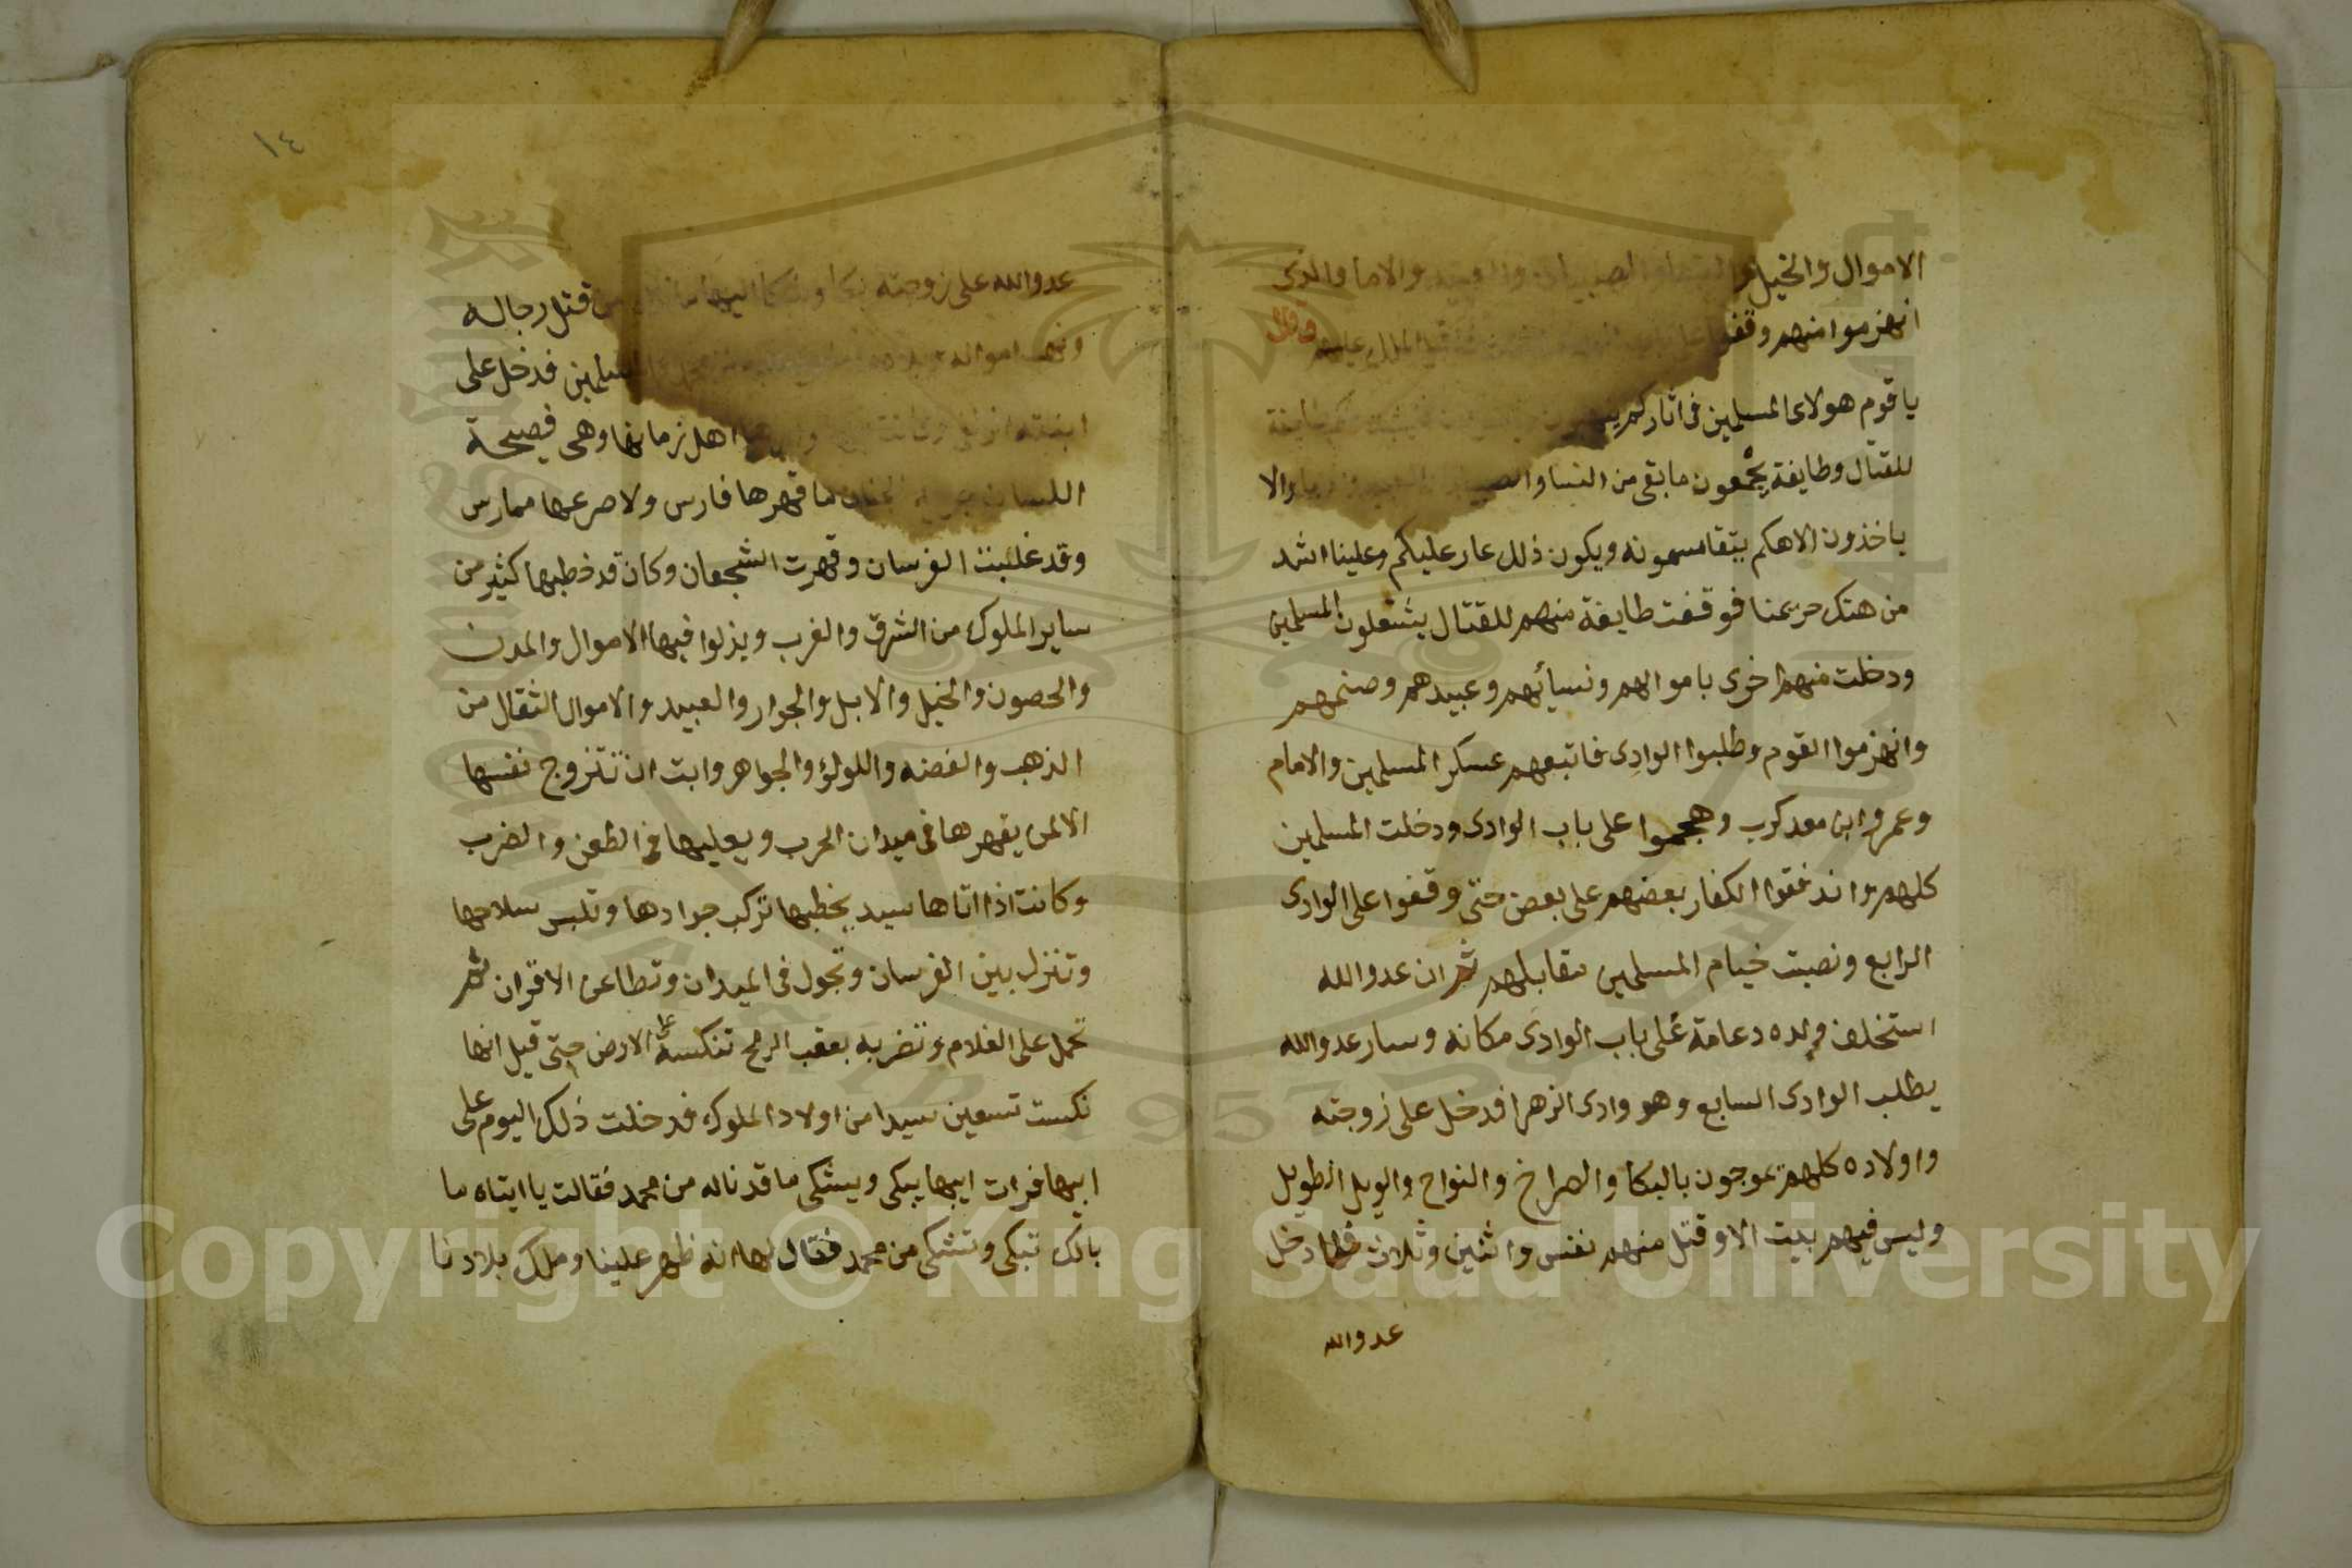 الاموال والخيل والنسا والصبيان والعبيد والاما والذى
انهزموا منهم وقفوا الملك عليهم وقال
ياقوم هولاى المسلمين فى اثاركم طايفة
للقتال وطايفة يجمعون ما بقى من النسا والا
ياخذون الاهكم يتقاسمونه ويكون ذلك عار عليكم وعلينا اشد
من هتك حريمنا فوقفت طايفة منهم للقتال يشتغلون المسلمين
ودخلت منهم اخرى باموالهم ونسائهم وعبيدهم وصنمهم
وانهزموا القوم وطلبوا الوادى فاتبعهم عسكر المسلمين والامام
وعمرو ابن معدكرب وهجموا على باب الوادى ودخلت المسلمين
كلهم واندفقوا الكفار بعضهم على بعض حتى وقفوا على الوادى
الرابع ونصبت خيام المسلمين مقابلهم ثم ان عدوالله
استخلف ولده دعامة على باب الوادى مكانه وسار عدوالله
يطلب الوادى السابع وهو وادى الزهرا فدخل على زوجته
واولاده كلهم يموجون بالبكا والصراخ والنواح والويل الطويل
وليس فيهم بيت الا وقتل منهم نفس واثنين وثلاث فلما دخل
عدوالله
١٤
عدوالله على زوجته بكا وشكا اليها من قتل رجاله
ونهب امواله المسلمين فدخل على
ابنته وكانت اهل زمانها وهى فصيحة
اللسان الجنان ما قهرها فارس ولا صرعها ممارس
وقد غلبت الفرسان وقهرت الشجعان وكان قد خطبها كثير من
ساير الملوك من الشرق والغرب ويذلوا فيها الاموال والمدن
والحصون والخيل والابل والجوار والعبيد والاموال الثقال من
الذهب والفضه واللولؤ والجواهر وابت ان تتزوج نفسها
الا لمن يقهرها فى ميدان الحرب ويعليها فى الطعن والضرب
وكانت اذا اتاها سيد يخطبها تركب جوادها وتلبس سلاحها
وتنزل بين الفرسان وتجول فى الميدان وتطاعن الاقران ثم
تحمل على الغلام وتضربه بعقب الرمح تنكسه على الارض حتى قيل انها
نكست تسعين سيدا من اولاد الملوك فدخلت ذلك اليوم على
ابيها فرات ابيها يبكى ويشكى ما قد ناله من محمد فقالت يا ابتاه ما
بالك تبكى وتشكى من محمد فقال لها انه ظهر علينا وملك بلادنا
Copyright © King Saud University